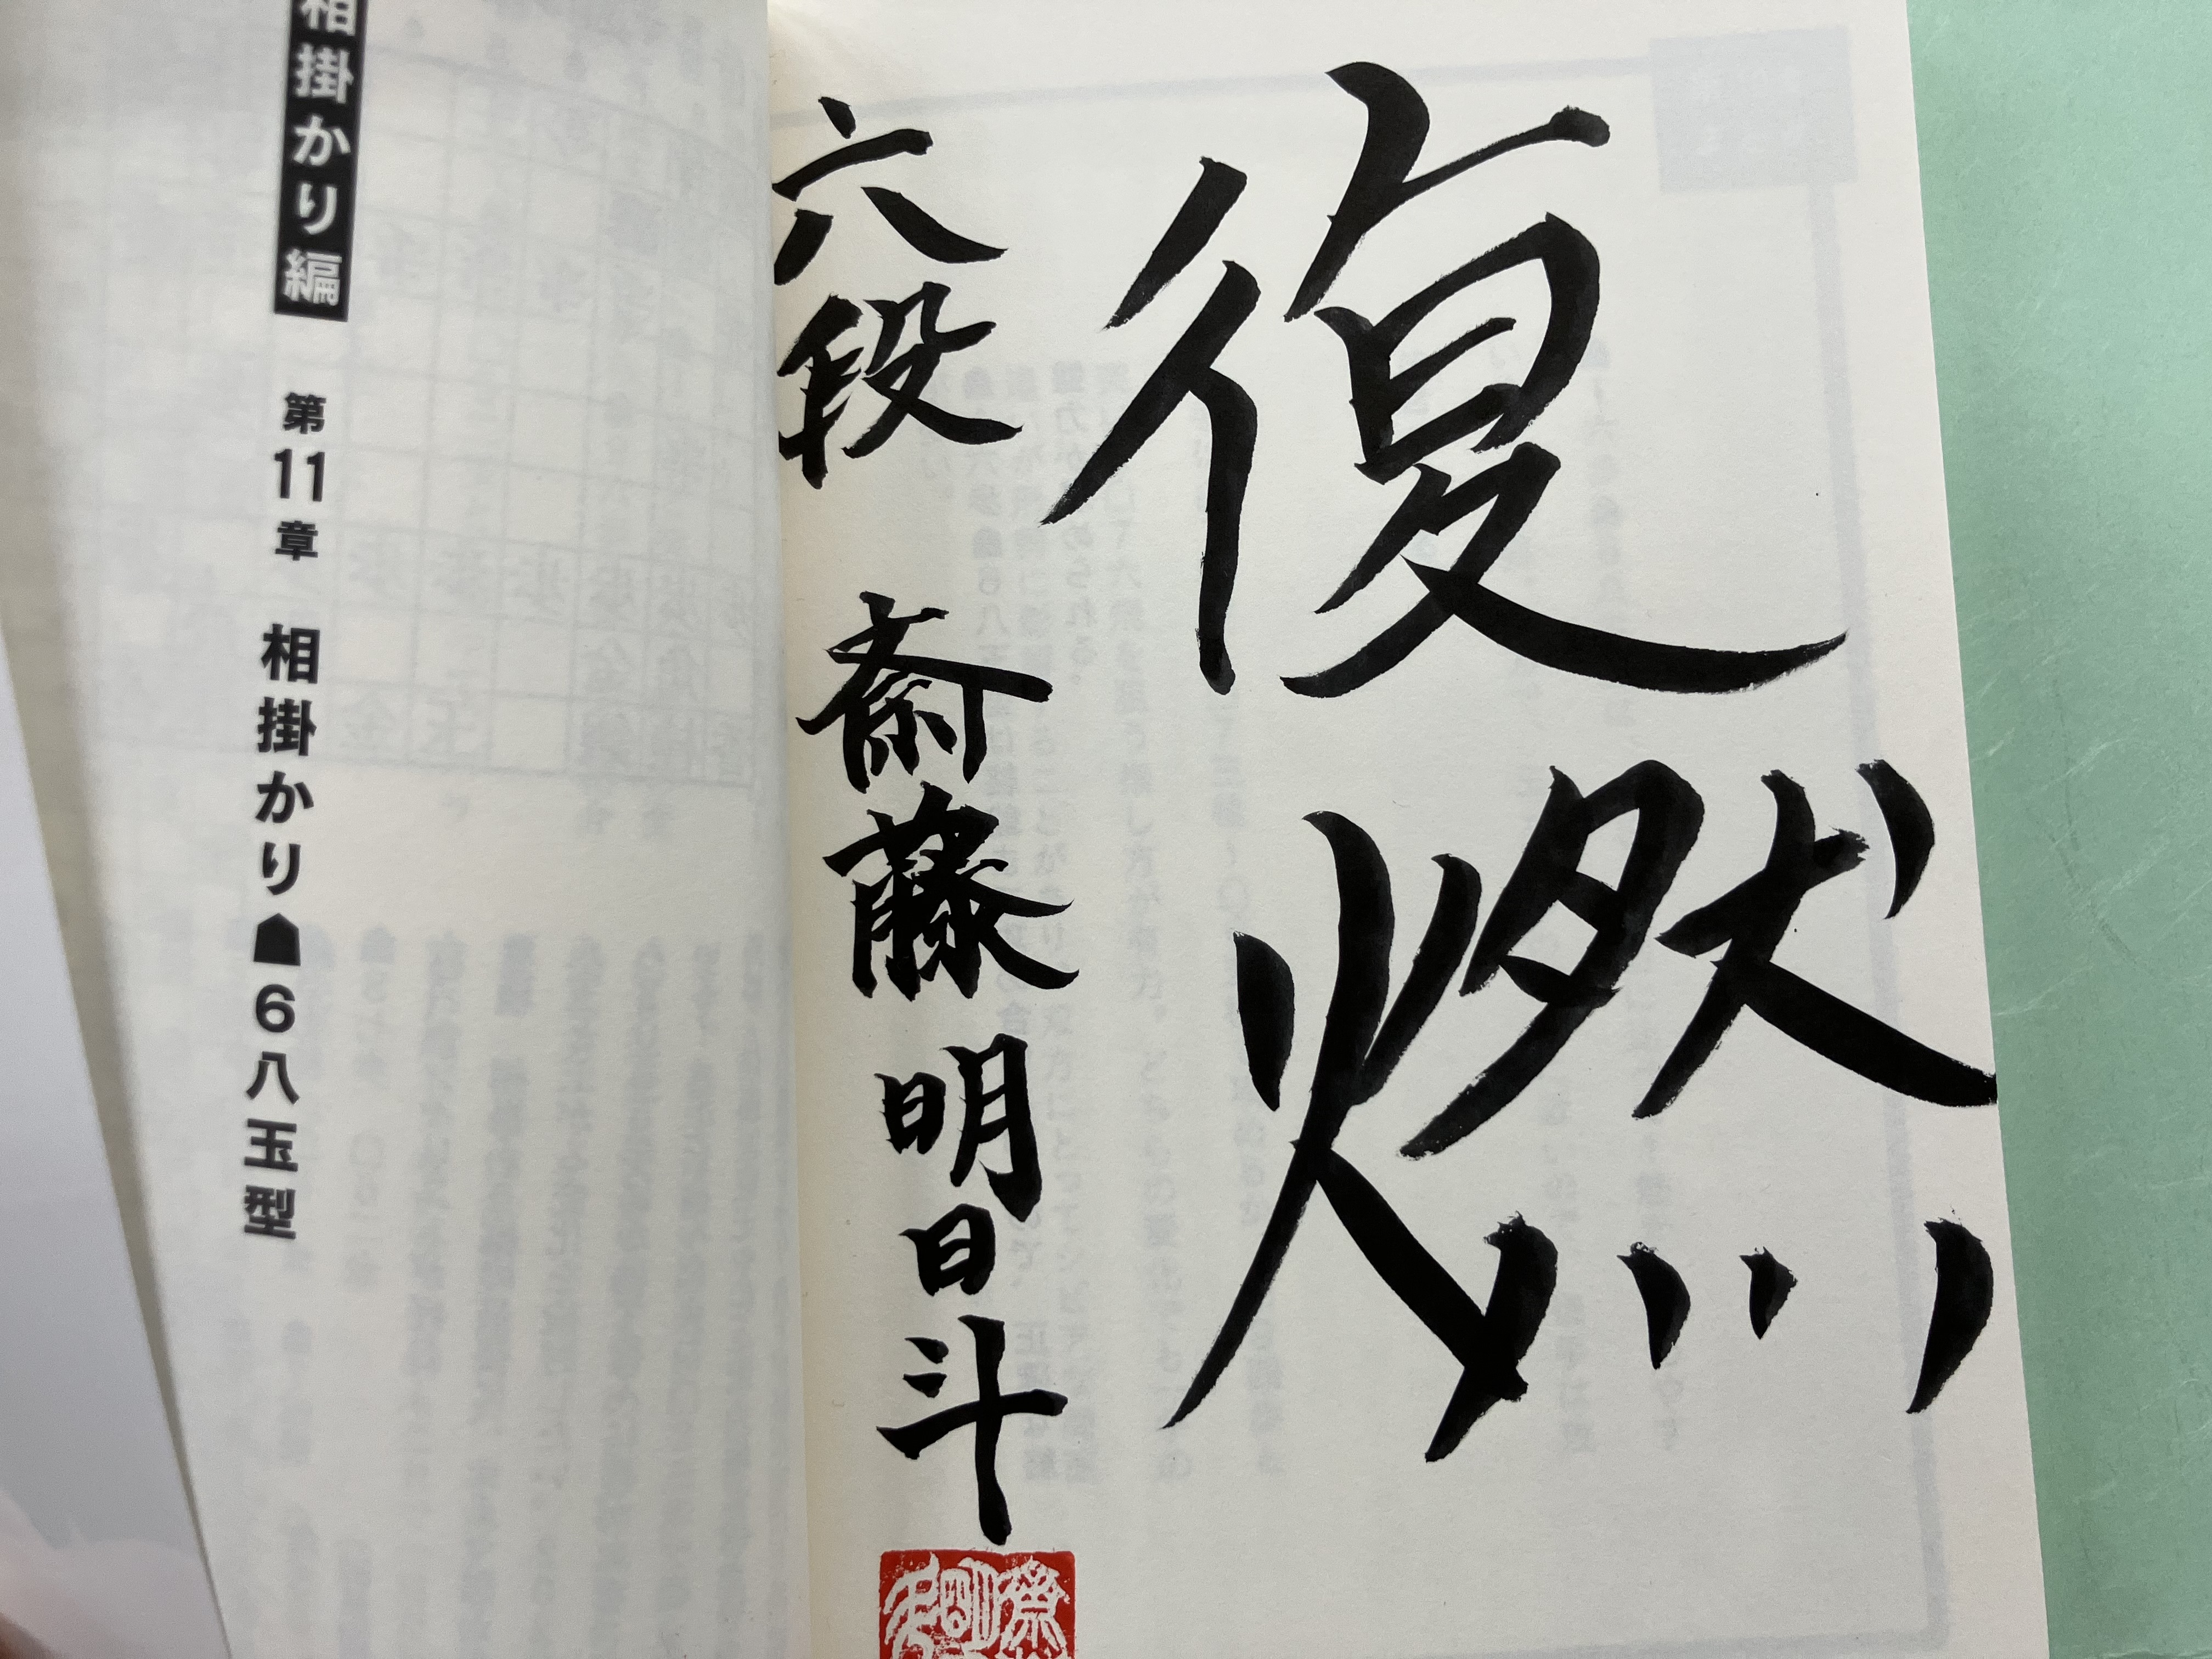 復燃
六段 斎藤明日斗
相掛かり編 第11章 相掛かり☗6八玉型